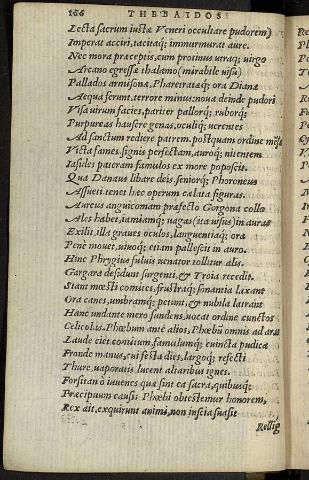 166 THEBAIDOS
Lecta sacrum iustæ Veneri occultare pudorem)
Imperat acciri, tacitaq; immurmurat aure.
Nec mora præceptis, cum protinus utraq; uirgo
Arcano egressæ thalamo (mirabile uisu)
Pallados armisonæ, Pharetratæq; ora Dianæ
Aequa ferunt, terrore minus: noua deinde pudori
Visa uirum facies, pariter pallorq; ruborq;
Purpureas hausere genas, oculiq; uerentes
Ad sanctum rediere patrem. postquam ordine mensæ
Victa fames, signis perfectam, auroq; nitentem
Iasides pateram famulos ex more poposcit.
Qua Danaus libare deis, seniorq; Phoroneus
Assueti. tenet hæc operum cælata figuras.
Aureus anguicomam præsecto Gorgona collo
Ales habet, iamiamq; uagas (ita uisus) in auras
Exilit, illa graues oculos, languentiaq; ora
Penè mouet, uiuoq; etiam pallescit in auro.
Hinc Phrygius fuluis uenator tollitur alis.
Gargara desidunt surgenti, & Troia recedit.
Stant mœsti comites, frustraq; sonantia laxant
Ora canes, umbramq; petunt, & nubila latrant
Hanc undante mero fundens, uocat ordine cunctos
Celicolas. Phœbum ante alios, Phœbū omnis ad aras
Laude ciet comitum, famulumq; euincta pudica
Fronde manus, cui festa dies, largoq; refecti
Thure, uaporatis lucent altaribus ignes.
Forsitan ô iuuenes quæ sint ea sacra, quibusq;
Præcipuum causis Phœbi obtestemur honorem,
Rex ait, exquirunt animi, non inscia suasit
Rellig